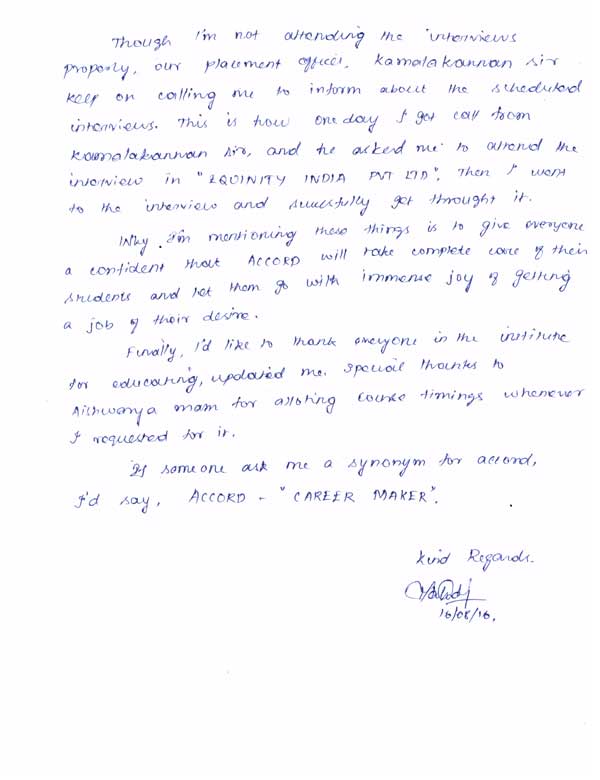 Though I'm not attending the interviews
properly, our placement officer, Kamalakannan sir
keep on calling me to inform about the scheduled
interviews. This is how one day I get call from
Kamalakannan sir, and he asked me to attend the
interview in "EQUINITY INDIA PVT LTD". Then I went
to the interview and sucessfully get throught it.
Why I'm mentioning these things is to give everyone
a confident that ACCORD will take complete care of their
students and let them go with immense joy of getting
a job of their desire.
Finally, I'd like to thank everyone in the institute
for educating, updated me. Special thanks to
Aishwarya mam for alloting course timings whenever
I requested for it.
If someone ask me a synonym for accord,
I'd say, ACCORD - "CAREER MAKER".
Kind Regards.
16/08/16.